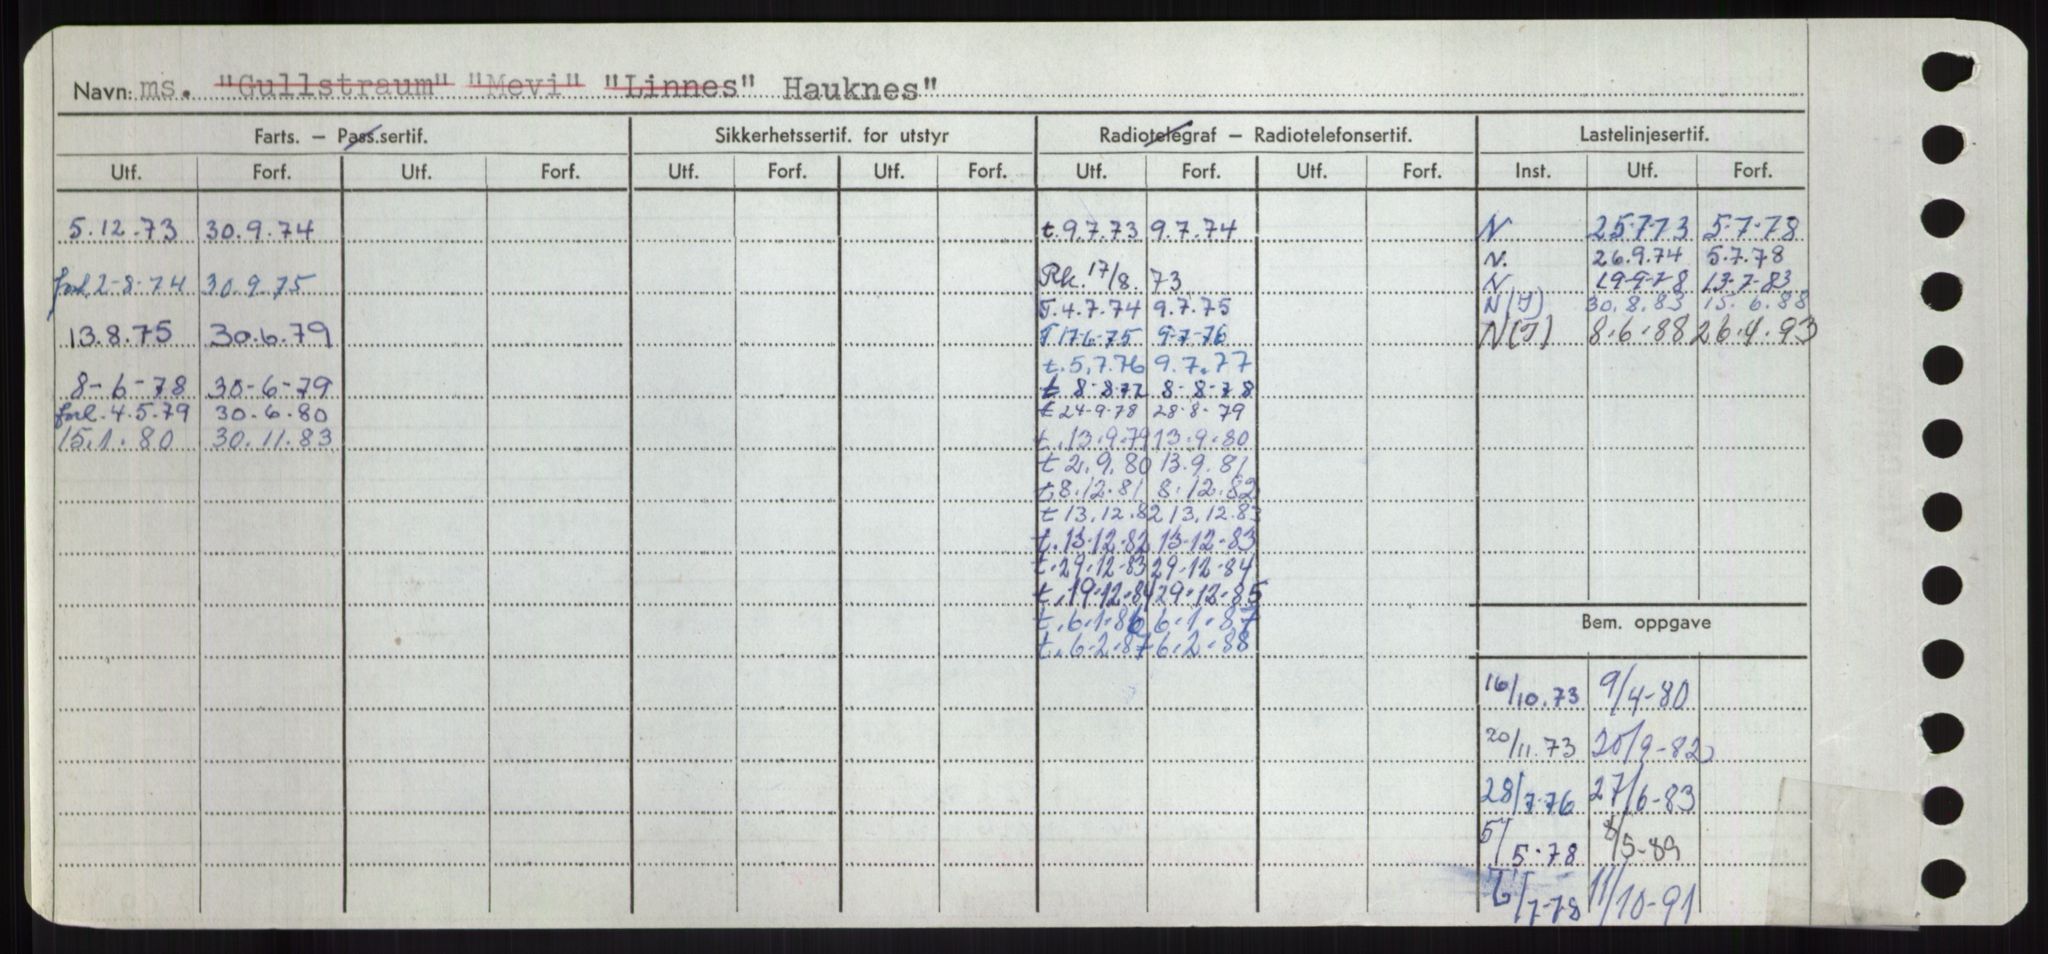 Navn: ms. "Gullstraum" "Mevi" "Linnes" Hauknes"
Farts. – Pass.sertif. Sikkerhetssertif. for utstyr Radiotelegraf – Radiotelefonsertif. Lastelinjesertif.
Utf. Forf. Utf. Forf. Utf. Forf. Utf. Forf. Utf. Forf. Utf. Forf. Inst. Utf. Forf.
5.12.73 30.9.74 t.9.7.73 9.7.74 N 25.7.73 5-7-78
N. 26.9.74 5.7.78
forl. 2-8-74 30.9.75 Rk. 17/8. 73 N 19-9-78 13-7-83
T.4.7.74 9.7.75 N(J) 30.8.83 15.6.88
13.8.75 30.6.79 T 17-6-75 9-7-76 N(J) 8.6.88 26.4.93
t.5.7.76 9.7.77
8-6-78 30-6-79 t 8-8-77 8-8-78
forl. 4.5.79 30.6.80 t 24-9-78 28-8-79
15.1.80 30.11.83 t.13.9.79 13.9.80
t 2.9.80 13.9.81
t.8.12.81 8.12.82
t 13.12.82 13.12.83
t.13-12-82 13-12-83
t.29.12-83 29-12-84
t.19.12.84 29.12.85
t.6.1.86 6.1.87
t.6.2.87 6.2.88
Bem. oppgave
16/10.73 9/4-80
20/11.73 20/9-82
28/7-76 27/6-83
5/5-78 8/5-89
/7-78 11/10-91